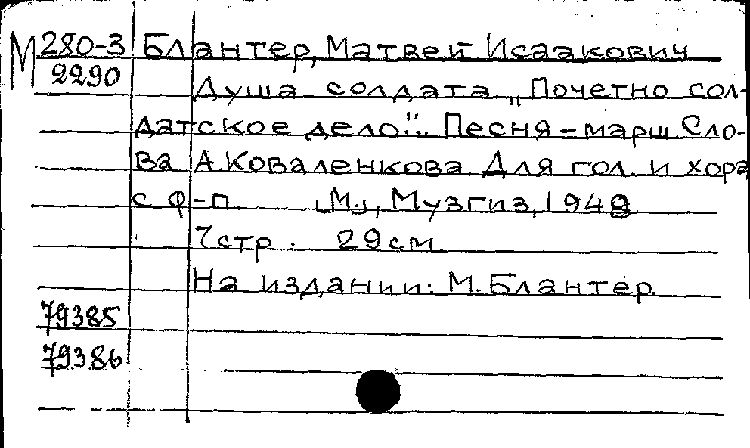 М 280-3 Блантер, Матвей Исаакович
2290
Душа солдата „Почетно сол-
датское дело..." Песня-марш. Сло-
ва А. Коваленкова Для гол. и хора
с ф-п. [М.], Музгиз, 1948
7 стр. 29 см.
На издании: М. Блантер.
79385
79386